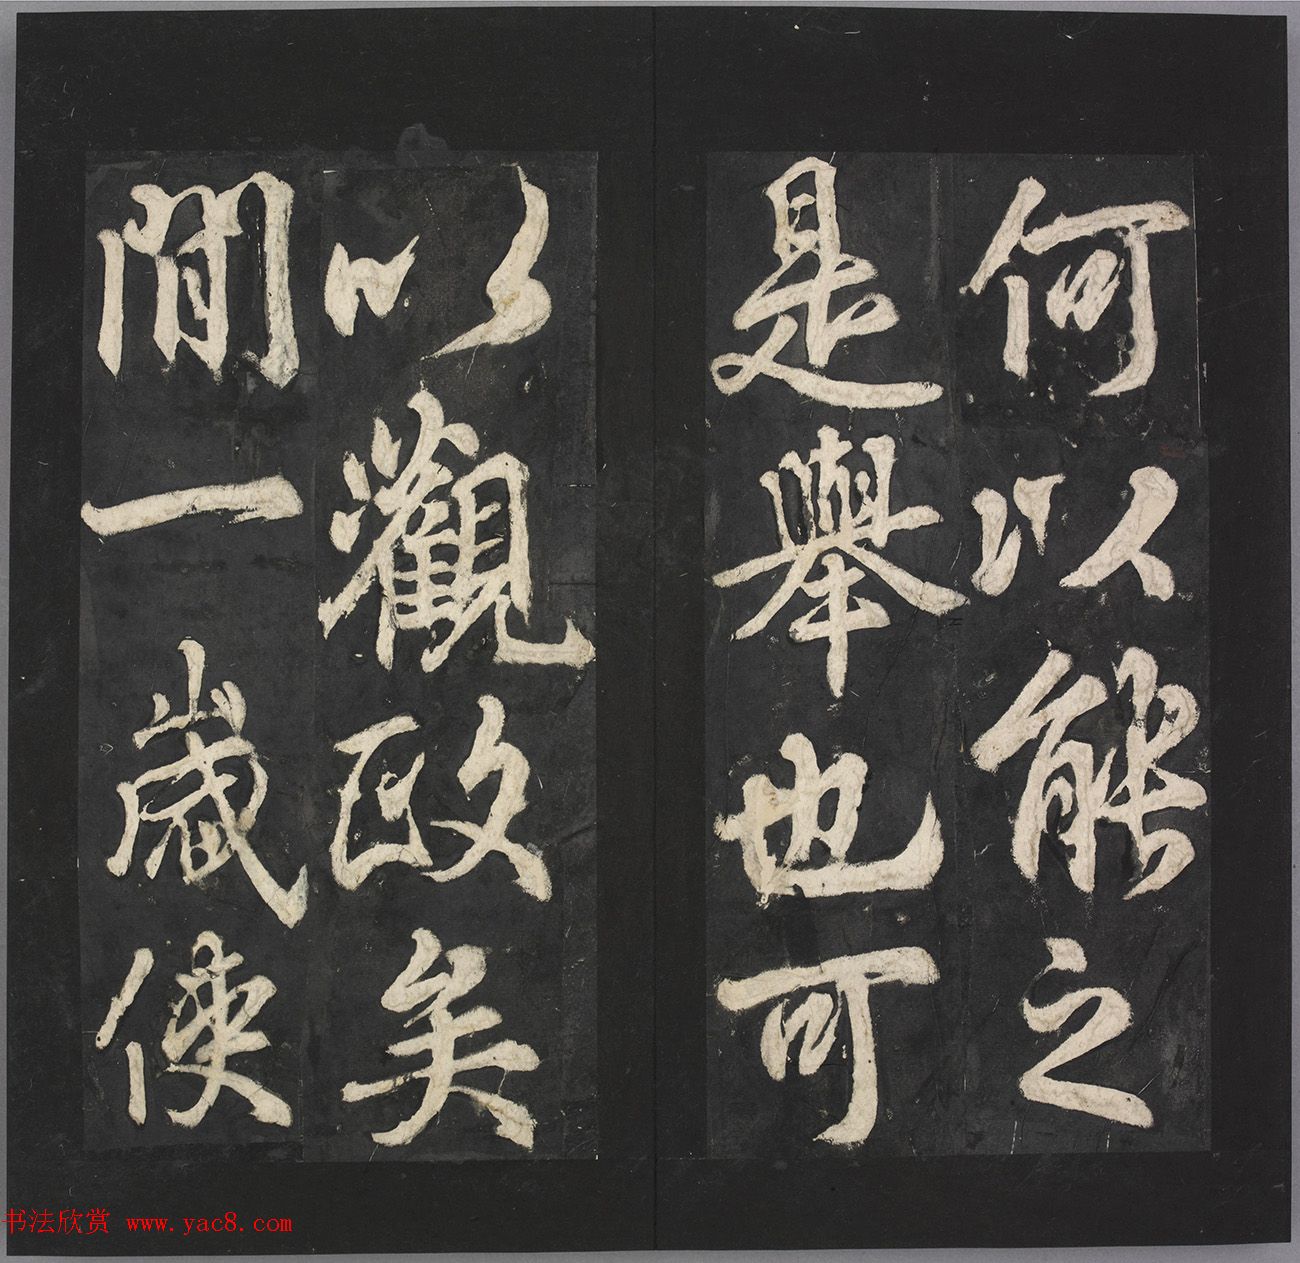 何以能之
是舉也可
以觀政矣
間一歲使
书法欣赏 www.yac8.com